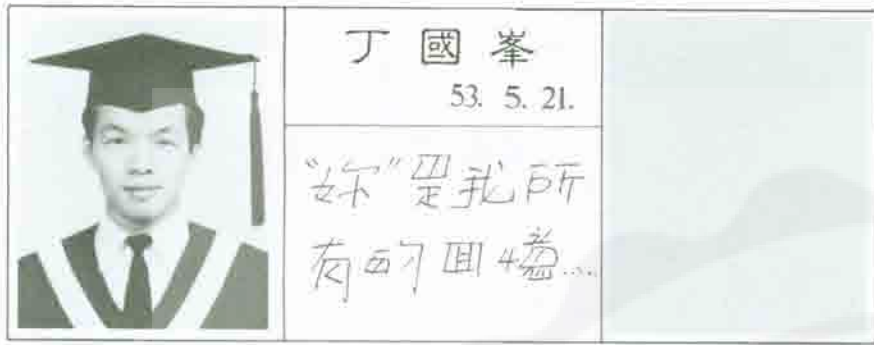 丁國峯
53. 5. 21.
“妳”是我所
有的回憶...